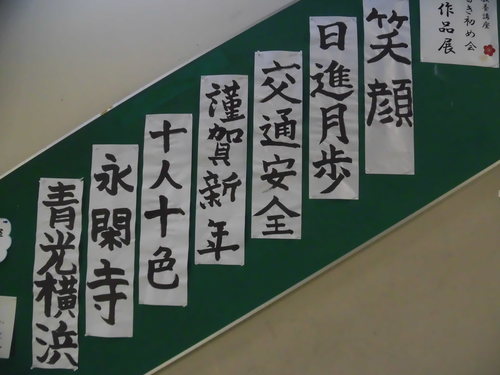 書き初め会
作品展
笑顔
日進月歩
交通安全
謹賀新年
十人十色
永閑寺
青光横浜